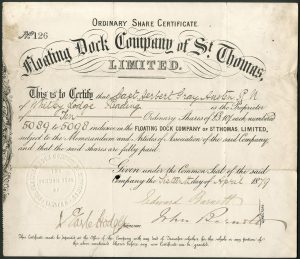 ORDINARY SHARE CERTIFICATE.
No. 126
Floating Dock Company of St. Thomas,
LIMITED.
This is to Certify that Capt. Herbert Gray Austin, R.N.
of Whitley Lodge Reading is the Proprietor
of Ten Ordinary Shares of £3.10/ each, numbered
5089 to 5098 inclusive in the FLOATING DOCK COMPANY OF ST. THOMAS, LIMITED,
subject to the Memorandum and Articles of Association of the said Company
and that the said shares are fully paid.
Given under the Common Seal of the said
Company the day of April 1879
Edward Barnett
John
Secretary
This Certificate must be deposited at the Office of the Company with any Deed of Transfer whether for the whole or any portion of
the above mentioned Shares before any new Certificate can be issued.